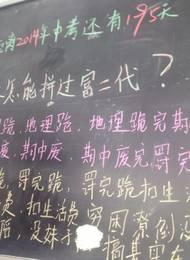 距离2014年中考还有195天
怎能拼过富二代?
跪,地理跪,地理跪完期
废,期中废,期中废完罚
完跪,罚完跪,罚完扣生活
费,扣生活费穷困潦倒没
没妹子 搞基